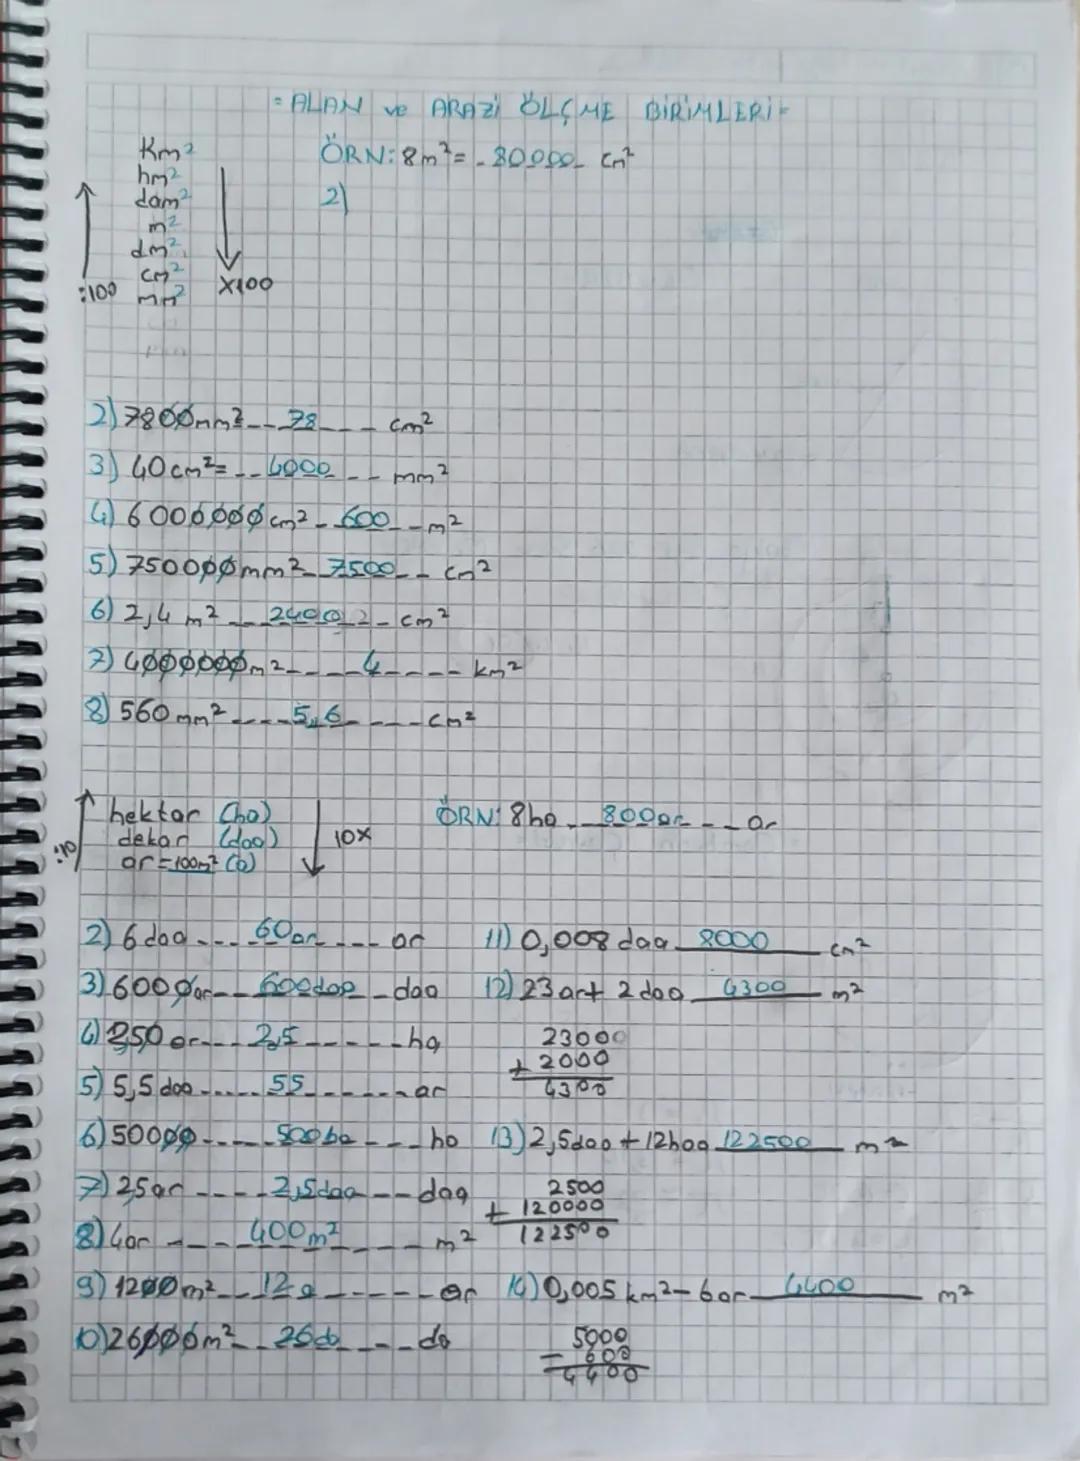 = ALAN ve ARAZİ ÖLÇME BİRİMLERİ =
Km²
hm²
dam²
m²
dm²
cm²
mm²
:100
x100
ÖRN: 8m² = - 80000 - cm²
2)
2) 7800mm² -- 78 --- cm²
3) 40cm² = -- 4000 -- mm²
4) 6000000cm² - 600 -- m²
5) 750000mm² - 7500 -- cm²
6) 2,4 m² -- 2400 2 - cm²
7) 4000000m² ---- 4 ---- km²
8) 560mm² --- 5,6 ---- cm²
hektar (ha)
dekar (daa)
ar = 100m² (a)
:10
10x
ÖRN: 8ha -- 800ar --- ar
2) 6daa --- 60ar --- ar
3) 6000ar -- 600daa - daa
4) 250ar --- 2,5 ----- ha
5) 5,5daa ----- 55 ------- ar
6) 50000 ---- 500ha --- ha
7) 25ar ---- 2,5daa -- daa
8) 4ar --- 400m² ---- m²
9) 1200m² -- 12a ----- ar
10) 26000m² -- 26da --- da
11) 0,008 daa 8000 cm²
12) 23ar + 2daa 4300 m²
23000
+ 2000
4300
13) 2,5daa + 12haa 122500 m²
2500
+ 120000
122500
14) 0,005 km² - 6ar 4400 m²
5000
- 600
4400